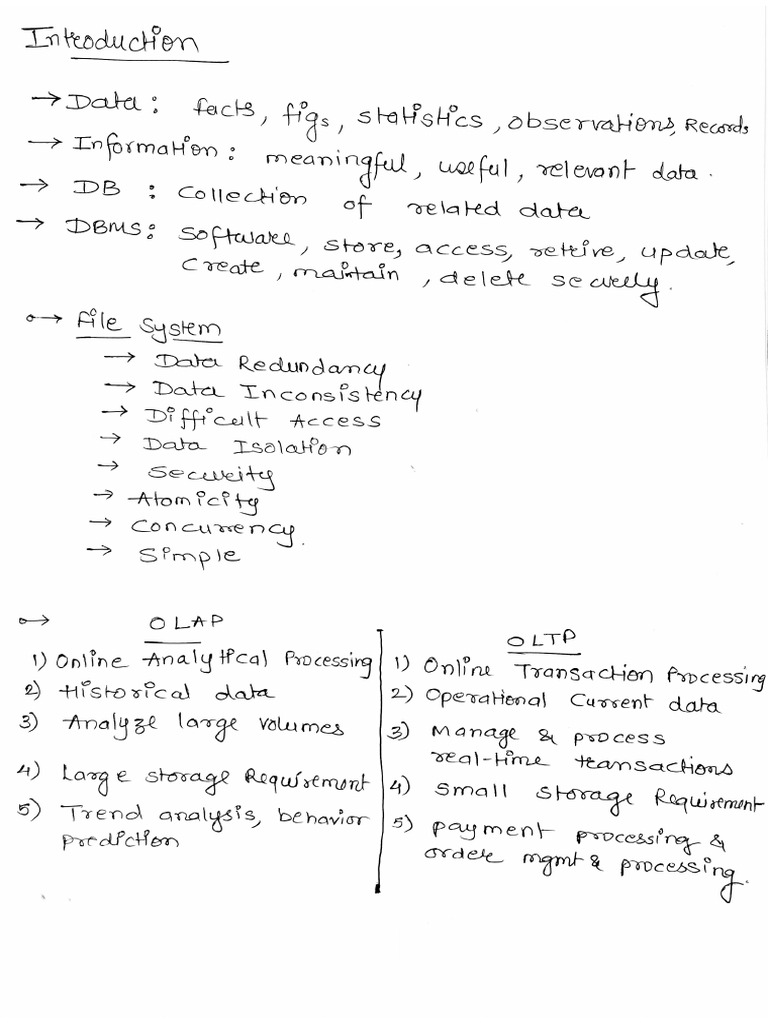 Introduction
→ Data: facts, figs, statistics, observations, Records
→ Information: meaningful, useful, relevant data.
→ DB : Collection of related data
→ DBMS: Software, store, access, retrive, update,
Create, maintain, delete securely.
→ File System
→ Data Redundancy
→ Data Inconsistency
→ Difficult Access
→ Data Isolation
→ Security
→ Atomicity
→ Concurrency.
→ Simple
→ OLAP
1) Online Analytical Processing
2) Historical data
3) Analyze large volumes
4) Large storage Requirement
5) Trend analysis, behavior
prediction
OLTP
1) Online Transaction Processing
2) Operational Current data
3) Manage & process
real-time transactions
4) Small storage Requirement
5) payment processing &
order mgmt & processing.